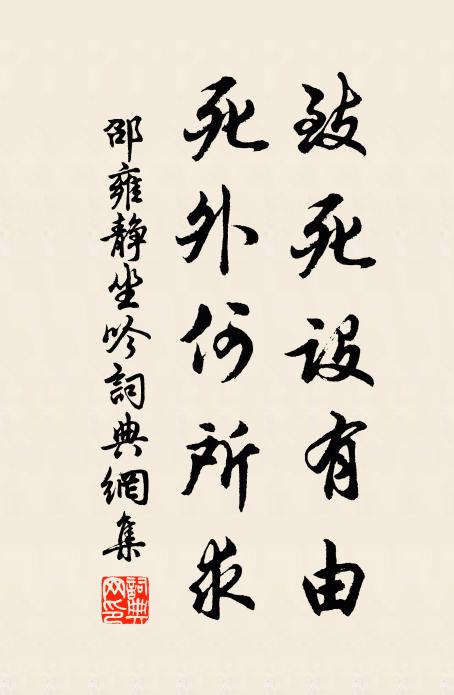 致死設有由
死外何所求
邵雍靜坐吟詞典網集
詞典
网印